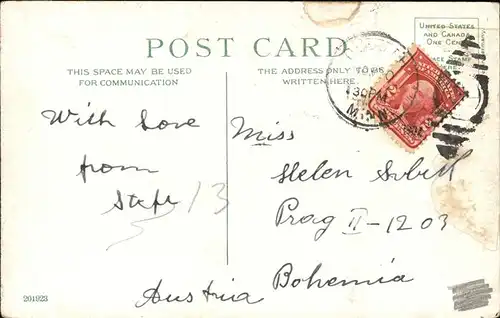 POST CARD
UNITED STATES
AND CANADA
ONE CENT
THIS SPACE MAY BE USED
FOR COMMUNICATION
THE ADDRESS ONLY TO BE
WRITTEN HERE.
PLACE STAMP
HERE
30PM
MINN
With Love
from
Stefe
13
Miss
Helen
Prag II - 1203
Bohemia
Austria
201923